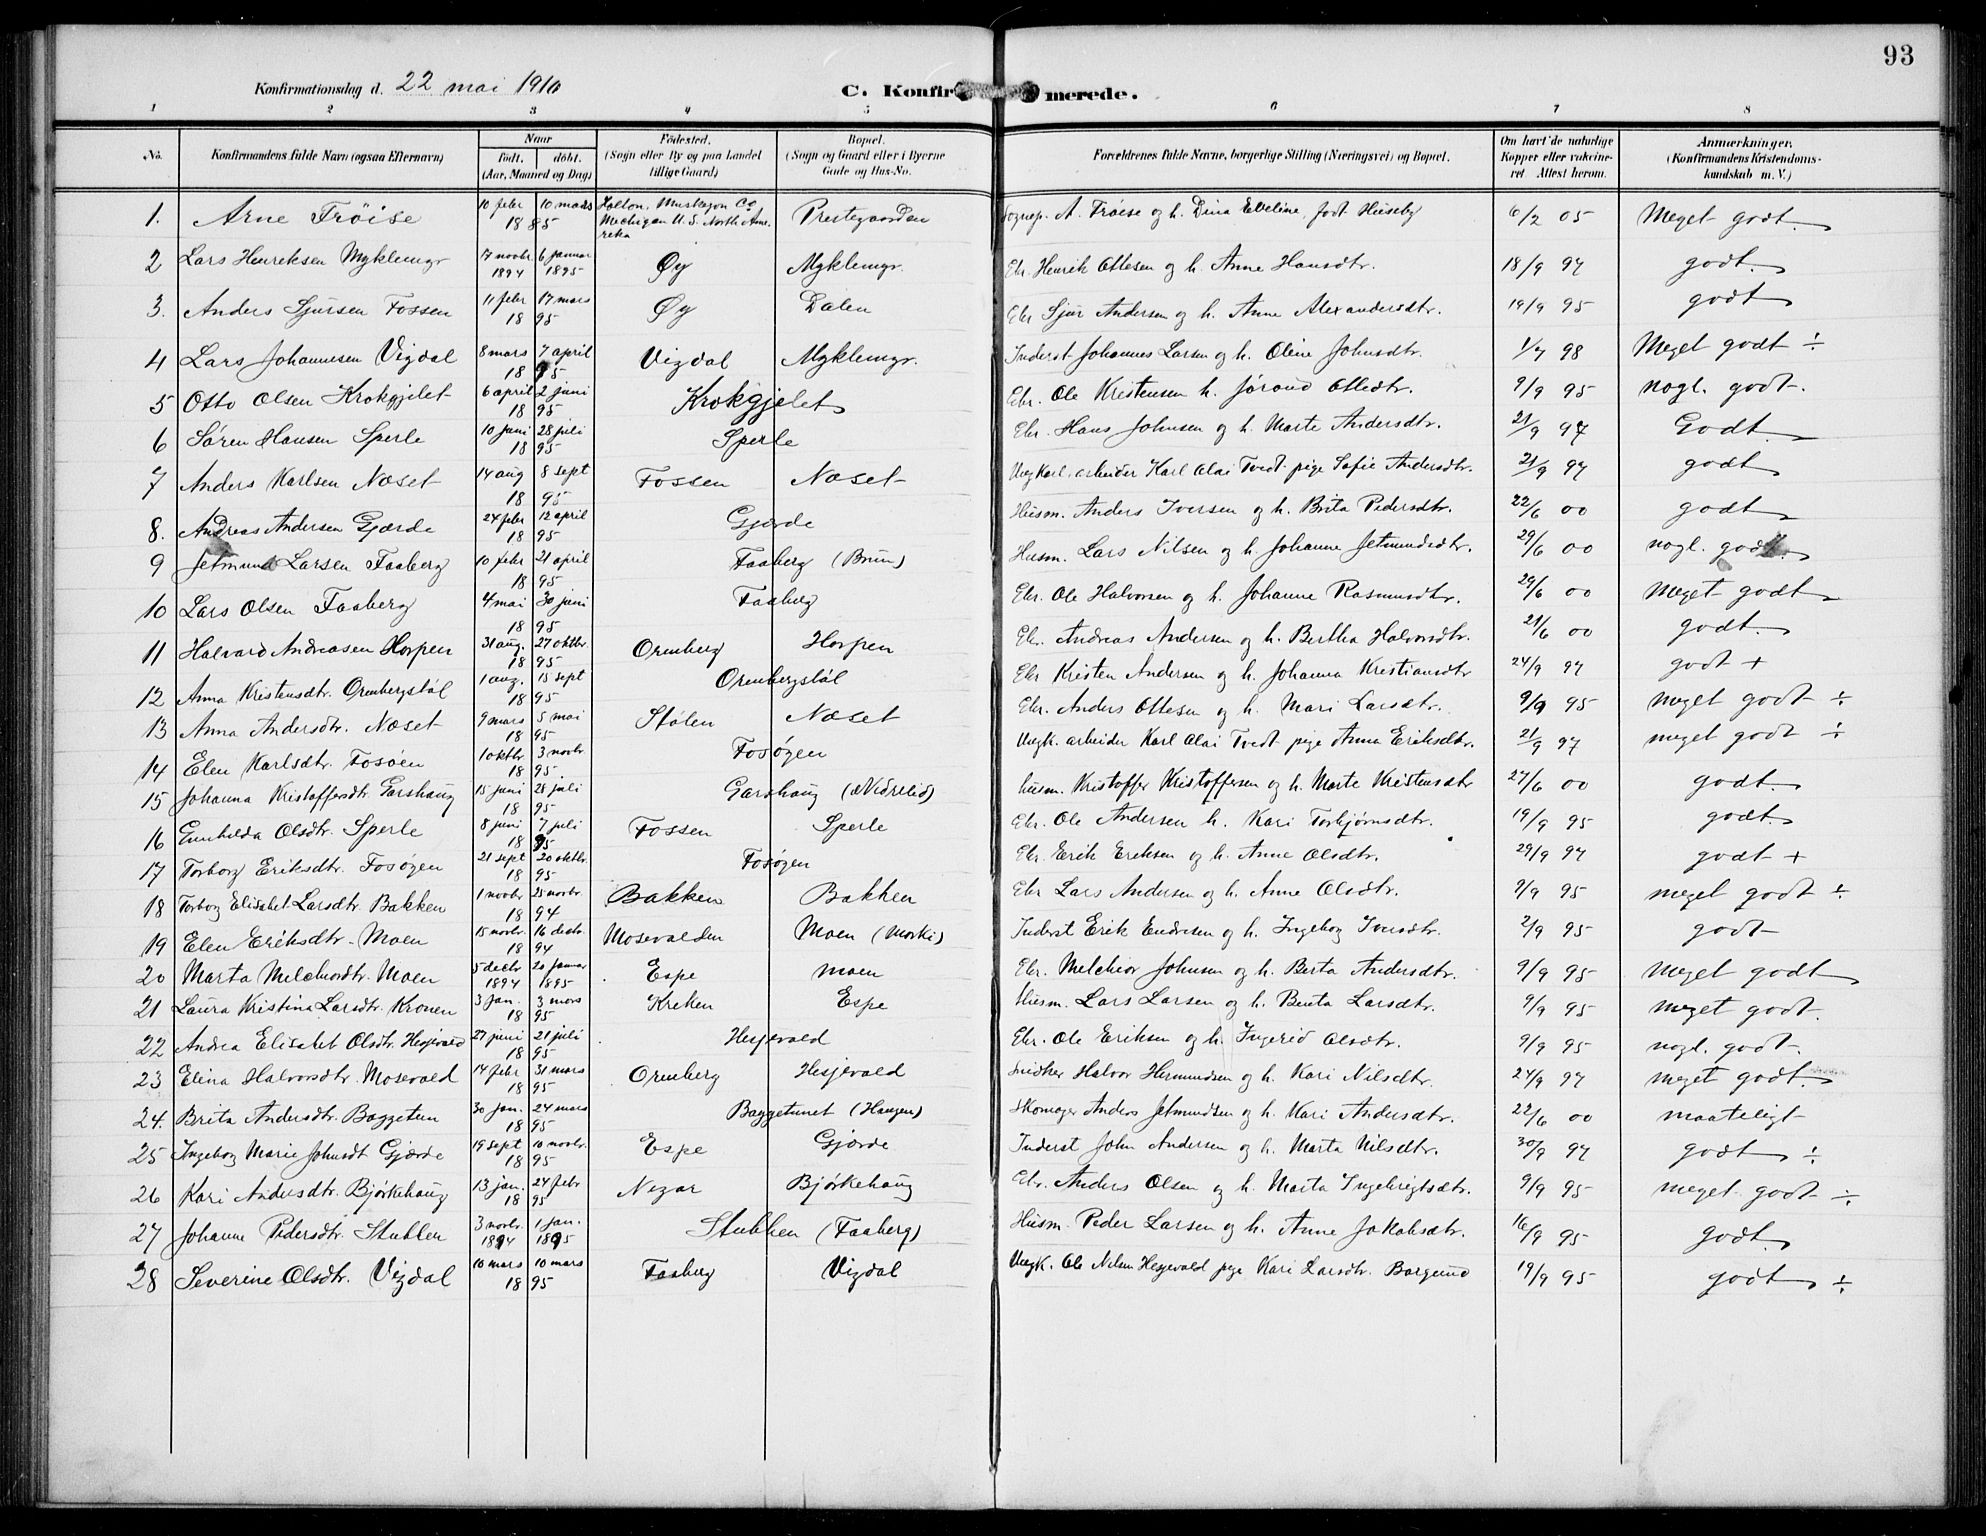 93
Konfirmationsdag d. 22 mai 1910 C. Konfirmerede.
1 2 3 4 5 6 7 8
No. Konfirmandens fulde Navn (ogsaa Efternavn) Naar født. døbt. (Aar, Maaned og Dag) Fødested. (Sogn eller By og paa Landet tillige Gaard) Bopæl. (Sogn og Gaard eller i Byerne Gade og Hus-No. Forældrenes fulde Navne, borgerlige Stilling (Næringsvei) og Bopæl. Om havt de naturlige Kopper eller vakcineret Attest herom. Anmærkninger, (Konfirmandens Kristendomskundskab m. V.)
1. Arne Tröise 10 febr 10 mars 1885 Holton, Muskegon Co Mechigan U. S. North Amerika Prestegaarden Sognep. A. Tröise og h. Dina Eveline, født Huseby 6/2 05 Meget godt.
2 Lars Henriksen Myklemyr 17 novbr 1894 6 januar 1895 Øy Myklemyr. Ebr. Henrik Ottesen og h. Anne Hansdtr. 18/9 97 godt.
3. Anders Sjursen Fossen 11 febr 17 mars 1895 Øy Dalen Ebr Sjur Andersen og h. Anne Alexandersdtr. 19/9 95 godt
4 Lars Johannesen Vigdal 8 mars 7 april 1895 Vigdal Myklemyr. Inderst Johannes Larsen og h. Oline Johnsdtr. 1/7 98 Meget godt ÷
5 Otto Olsen Krokgjelet 6 april 2 juni 1895 Krokgjelet Ebr. Ole Kristensen h. Jørand Ottedtr. 9/9 95 nogl. godt.
6 Søren Hansen Sperle 10 juni 28 juli 1895 Sperle Ebr. Hans Johnsen og h. Marte Andersdtr. 21/9 97 Godt
7 Anders Karlsen Næset 14 aug 8 sept 1895 Fossen Næset Ungkarl. arbeider Karl Olai Tvedt pige Sofie Andersdtr. 21/9 97 godt
8. Andreas Andersen Gjærde 24 febr 12 april 1895 Gjerde Husm. Anders Iversen og h. Brita Pedersdtr. 22/6 00 godt
9 Jetmund Larsen Faaberg 10 febr 21 april 1895 Faaberg (Brun) Husm. Lars Nilsen og h. Johanne Jetmundsdtr. 29/6 00 nogl. godt.
10 Lars Olsen Faaberg 4 mai 30 juni 1895 Faaberg Ebr. Ole Halvorsen og h. Johanne Rasmusdtr. 29/6 00 Meget godt
11 Halvard Andreasen Horpen 31 aug. 27 oktbr. 1895 Ormberg Horpen Eb. Andreas Andersen og h. Bertha Halvorsdtr. 21/6 00 godt.
12 Anna Kristensdtr. Ormbergstøl 1 aug. 15 sept 1895 Ormbergstøl Ebr Kristen Andersen og h. Johanna Kristiansdtr 24/9 97 godt +
13 Anna Andersdtr. Næset 9 mars 5 mai 1895 Stølen Næset Ebr. Anders Ottesen og h. Mari Larsdtr. 9/9 95 meget godt ÷
14 Elen Karlsdtr. Fosøen 1 oktbr 3 novbr 1895. Fosøgen Ungk. arbeider Karl Olai Tvedt pige Anna Eriksdtr. 21/9 97 meget godt ÷
15 Johanna Kristoffersdtr. Garshaug 15 juni 28 juli 1895 Garshaug (Nidrelid) husm. Kristoffer Kristoffersen og h. Marte Kristensdtr 27/6 00 godt.
16 Gunhilda Olsdtr. Sperle 8 juni 7 juli 1895 Fossen Sperle Ebr. Ole Andersen h. Kari Torbjørnsdtr. 19/9 95 godt.
17 Torborg Eriksdtr. Fosøgen 21 sept 20 oktbr. 1895 Fosøgen Ebr. Erik Eriksen og h. Anne Olsdtr. 29/9 97 godt +
18 Torborg Elisabet Larsdtr. Bakken 1 novbr 25 novbr. 1894 Bakken Bakken Ebr Lars Andersen og h. Anne Olsdtr. 9/9 95 meget godt ÷
19 Elen Eriksdtr. Moen 15 novbr. 16 decbr. 1894 Mosevolden Moen (Morki) Inderst Erik Endresen og h. Ingeborg Iversdtr. 2/9 95 godt
20 Marta Melchiordtr. Moen 5 decbr 1894 20 januar 1895 Espe Moen Ebr. Melchior Johnsen og h. Berta Andersdtr. 9/9 95 Meget godt
21 Laura Kristina Larsdtr. Kronen 3 jan. 3 mars 1895 Kreken Espe Husm. Lars Larsen og h. Benta Larsdtr. 9/9 95 meget godt.
22 Andrea Elisabet Olsdtr. Hesjevold 27 juni 21 juli 1895 Hesjevold Ebr. Ole Eriksen og h. Ingerid Olsdtr. 9/9 95 nogl. godt.
23 Elina Halvorsdtr. Mosevold 14 febr 31 mars 1895 Ormberg Hesjevold Snidker Halvor Hermundsen og h. Kari Nilsdtr. 24/9 97 meget godt.
24. Brita Andersdtr. Baggetun 30 jan. 24 mars 1895 Baggetunet (Haugen) Skomager Anders Jetmundsen og h. Kari Andersdtr. 22/6 00 maateligt
25 Ingeborg Marie Johnsdt Gjærde 19 sept 10 novbr. 1895 Espe Gjerde Inderst John Andersen og h. Marta Nilsdtr. 30/9 97 godt ÷
26 Kari Andersdtr. Bjørkehaug 13 jan. 24 febr 1895 Nygar Bjørkehaug Ebr. Anders Olsen og h. Marta Ingebrigtsdtr. 9/9 95 meget godt ÷
27 Johanne Pedersdtr. Stubben 3 novbr. 1894 1 jan. 1895 Stubben (Faaberg) Husm. Peder Larsen og h. Anne Jakobsdtr. 16/9 95 godt.
28 Severine Olsdtr. Vigdal 10 mars 10 mars 1895 Faaberg Vigdal Ungk. Ole Nilsen Hesjevold pige Kari Larsdtr. Borgund 19/9 95 godt ÷